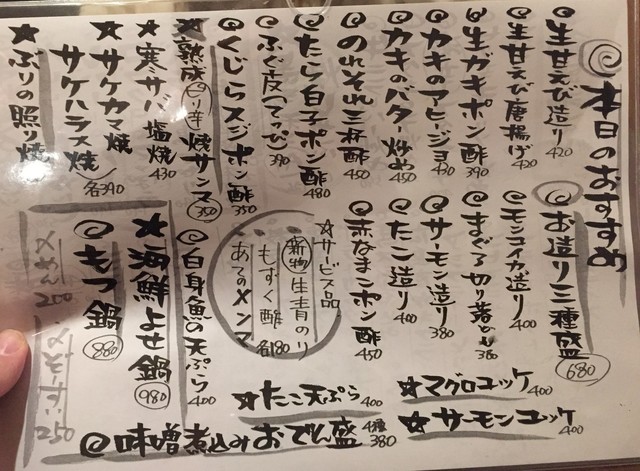 本日のおすすめ
生甘えび造り 420
生甘えび唐揚げ 420
生ガキポン酢 390
カキのアヒージョ 430
カキのバター炒め 450
のれそれ三杯酢 450
たら白子ポン酢 480
ふぐ皮(てっぴ) 390
くじらスジポン酢 350
★熟成ピリ辛焼サンマ 350
★寒サバ塩焼 430
★サケカマ焼
サケハラス焼 各390
★ぶりの照り焼
お造り三種盛 680
モンゴイカ造り 400
まぐろ切り落とし 380
サーモン造り 380
たこ造り 400
赤なまこポン酢 450
☆サービス品
新物 生青のり
もずく酢 各180
あてのメンマ
白身魚の天ぷら 400
★海鮮よせ鍋 980
もつ鍋 880
〆めん 200
〆ぞーすい 250
☆マグロユッケ 400
☆サーモンユッケ 400
☆たこ天ぷら 400
味噌煮込みおでん盛 4種 380